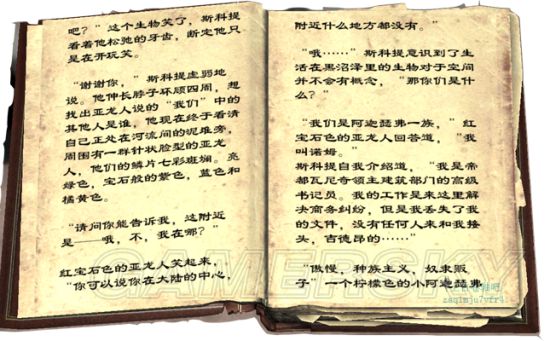 吧？”这个生物笑了，斯科提
看着他松弛的牙齿，断定他只
是在开玩笑。
“谢谢你，”斯科提虚弱地
说。他伸长脖子环顾四周，想
找出亚龙人说的“我们”中的
其他人是谁，他现在终于看清
自己正处在河流间的泥堆旁，
周围有一群针状脸型的亚龙
人，他们的鳞片七彩斑斓。亮
绿色，宝石般的紫色，蓝色和
橘黄色。
“请问你能告诉我，这附近
是——哦，不，我在哪？”
红宝石色的亚龙人笑起来，
“你可以说你在大陆的中心，
附近什么地方都没有。”
“哦……”斯科提意识到了生
活在黑沼泽里的生物对于空间
并不会有概念，“那你们是什
么？”
“我们是阿迦瑟弗一族，”红
宝石色的亚龙人回答道，“我
叫诺姆。”
斯科提自我介绍道，“我是帝
都瓦尼奇领主建筑部门的高级
书记员。我的工作是来这里解
决商务纠纷，但是我丢失了我
的文件，没有任何人来和我接
头，吉德昂的……”
“傲慢，种族主义，奴隶贩
子”一个柠檬色的小阿迦瑟弗
GAMERSKY
zaqimju7yfr4